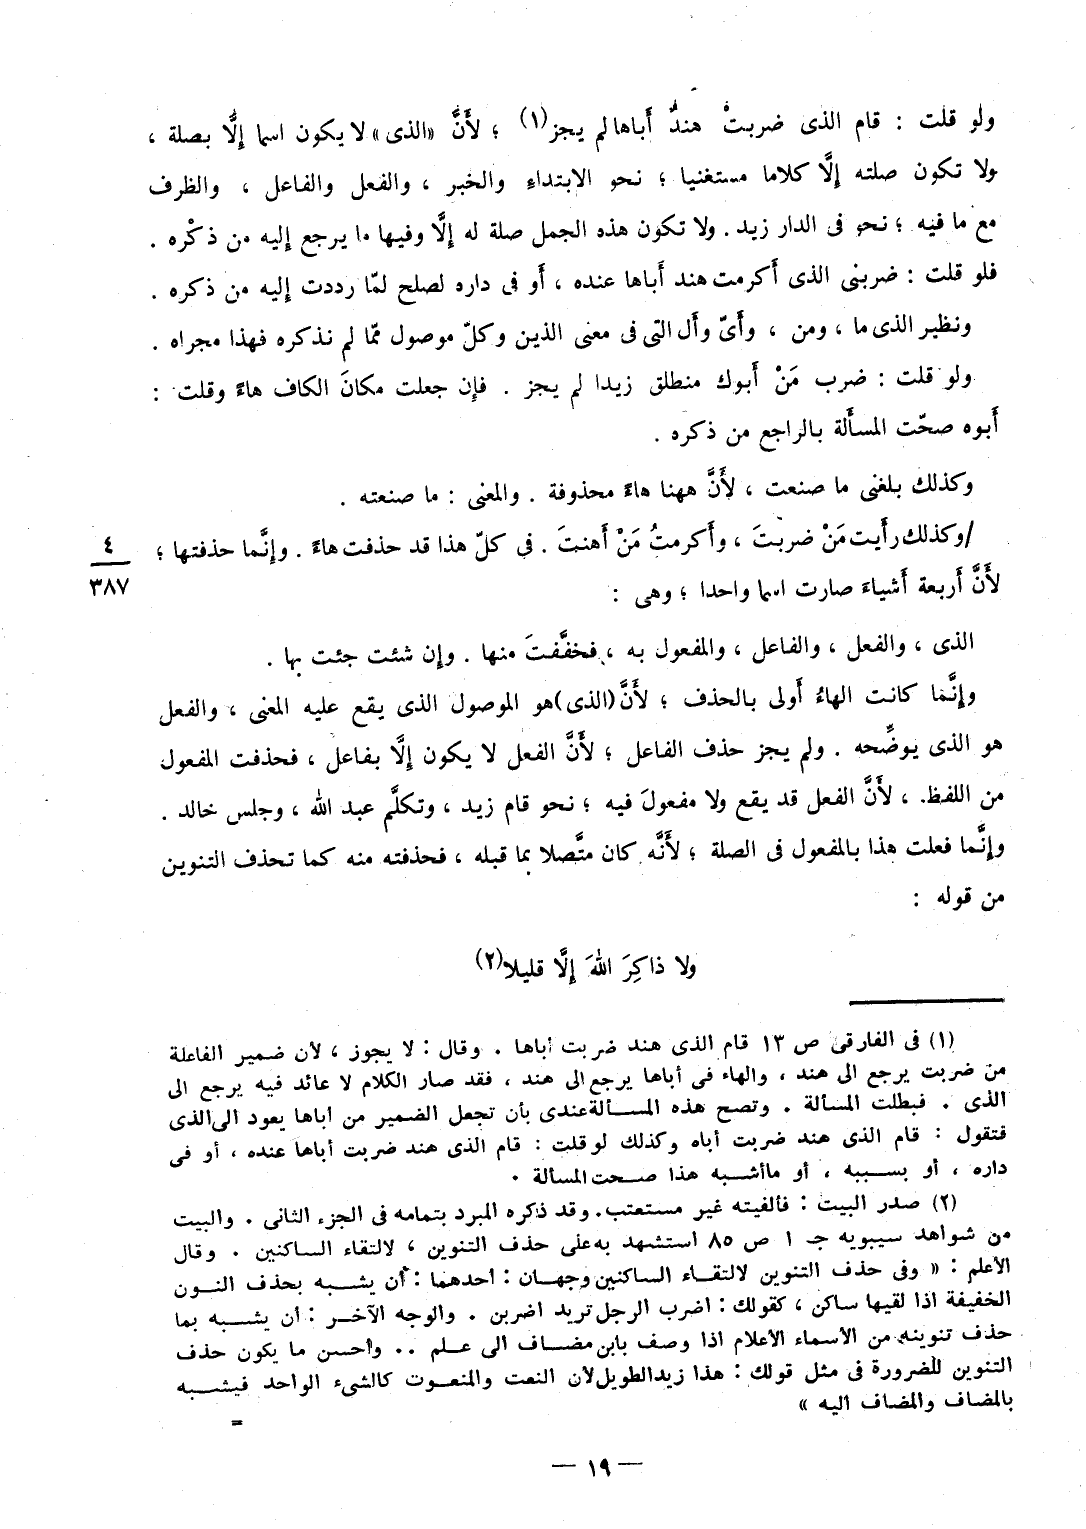 ولو قلت : قام الذى ضربتْ هندٌ أَباها لم يجز(١) ؛ لأَنَّ «الذى» لا يكون اسما إلَّا بصلة ،
ولا تكون صلته إلَّا كلاما مستغنيا ؛ نحو الابتداءِ والخبر ، والفعل والفاعل ، والظرف
مع ما فيه ؛ نحو فى الدار زيد . ولا تكون هذه الجمل صلة له إلَّا وفيها ما يرجع إليه من ذكْره .
فلو قلت : ضربنى الذى أَكرمت هند أَباها عنده ، أَو فى داره لصلح لمّا رددت إليه من ذكره .
ونظير الذى ما ، ومن ، وأَىّ وأَل التى فى معنى الذين وكلّ موصول ممّا لم نذكره فهذا مجراه .
ولو قلت : ضرب مَنْ أَبوك منطلق زيدا لم يجز . فإن جعلت مكانَ الكاف هاءً وقلت :
أَبوه صحّت المسأَلة بالراجع من ذكره .
وكذلك بلغنى ما صنعت ، لأَنَّ ههنا هاءً محذوفة . والمعنى : ما صنعته .
/وكذلك رأَيت مَنْ ضربتَ ، وأَكرمتُ مَنْ أَهنتَ . فى كلّ هذا قد حذفت هاءً . وإنَّما حذفتها ؛
٤
٣٨٧
لأَنَّ أَربعة أَشياءَ صارت اسما واحدا ؛ وهى :
الذى ، والفعل ، والفاعل ، والمفعول به ، فخفَّفتَ منها . وإن شئت جئت بها .
وإنَّما كانت الهاءُ أَولى بالحذف ؛ لأَنَّ (الذى) هو الموصول الذى يقع عليه المعنى ، والفعل
هو الذى يوضِّحه . ولم يجز حذف الفاعل ؛ لأَنَّ الفعل لا يكون إلَّا بفاعل ، فحذفت المفعول
من اللفظ. ، لأَنَّ الفعل قد يقع ولا مفعولَ فيه ؛ نحو قام زيد ، وتكلَّم عبد الله ، وجلس خالد .
وإنَّما فعلت هذا بالمفعول فى الصلة ؛ لأَنَّه كان متَّصلا بما قبله ، فحذفته منه كما تحذف التنوين
من قوله :
ولا ذاكِرَ اللهَ إلَّا قليلا(٢)
(١) فى الفارقى ص ١٣ قام الذى هند ضربت أباها . وقال : لا يجوز ، لأن ضمير الفاعلة
من ضربت يرجع الى هند ، والهاء فى أباها يرجع الى هند ، فقد صار الكلام لا عائد فيه يرجع الى
الذى . فبطلت المسألة . وتصح هذه المسألة عندى بأن تجعل الضمير من أباها يعود الى الذى
فتقول : قام الذى هند ضربت أباه وكذلك لو قلت : قام الذى هند ضربت أباها عنده ، أو فى
داره ، أو بسببه ، أو ماأشبه هذا صحت المسألة .
(٢) صدر البيت : فألفيته غير مستعتب . وقد ذكره المبرد بتمامه فى الجزء الثانى . والبيت
من شواهد سيبويه جـ ١ ص ٨٥ استشهد به على حذف التنوين ، لالتقاء الساكنين . وقال
الأعلم : « وفى حذف التنوين لالتقاء الساكنين وجهان : أحدهما : أن يشبه بحذف النون
الخفيفة اذا لقيها ساكن ، كقولك : اضرب الرجل تريد اضربن . والوجه الآخر : أن يشبه بما
حذف تنوينه من الأسماء الأعلام اذا وصف بابن مضاف الى علم .. وأحسن ما يكون حذف
التنوين للضرورة فى مثل قولك : هذا زيد الطويل لأن النعت والمنعوت كالشىء الواحد فيشبه
بالمضاف والمضاف اليه »
=
— ١٩ —